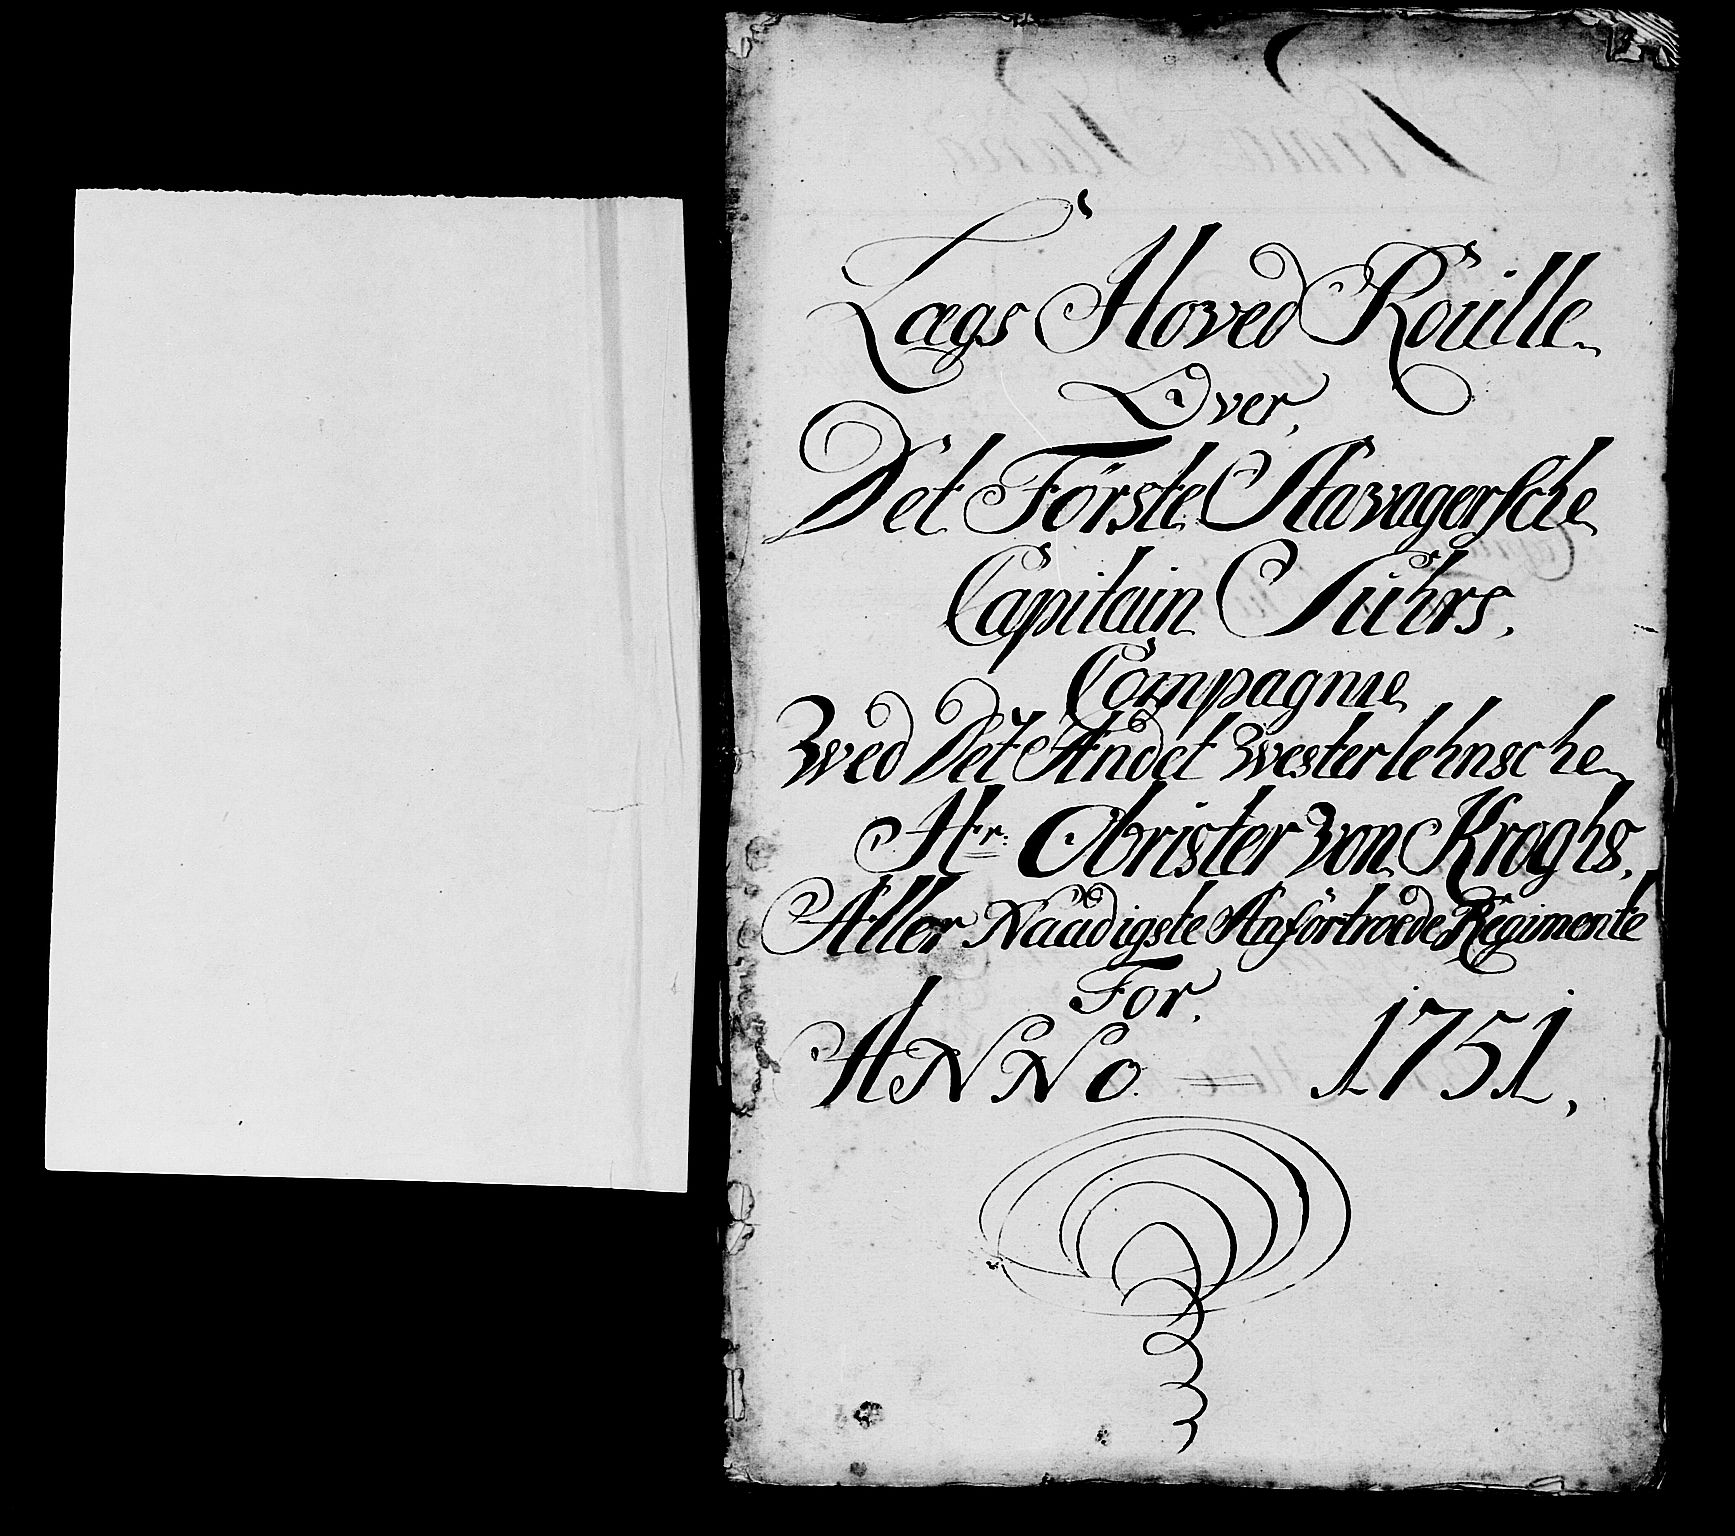 Lægs Hoved Roúlle
Over,
Det Förste Stavagersche
Capitain Súhrs,
Compagnie
Wed Det Andet Westerlehnsche
Hr: Obrister Von Kroghs,
Aller Naadigste Anförtroede Regimente
For,
ANNo = 1751,